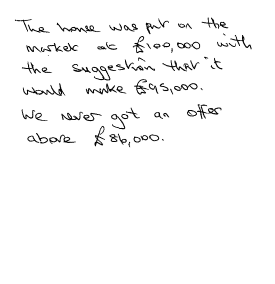 The house was put on the
market at £100,000 with
the suggestion that it
would make £95,000.
We never got an offer
above £86,000.